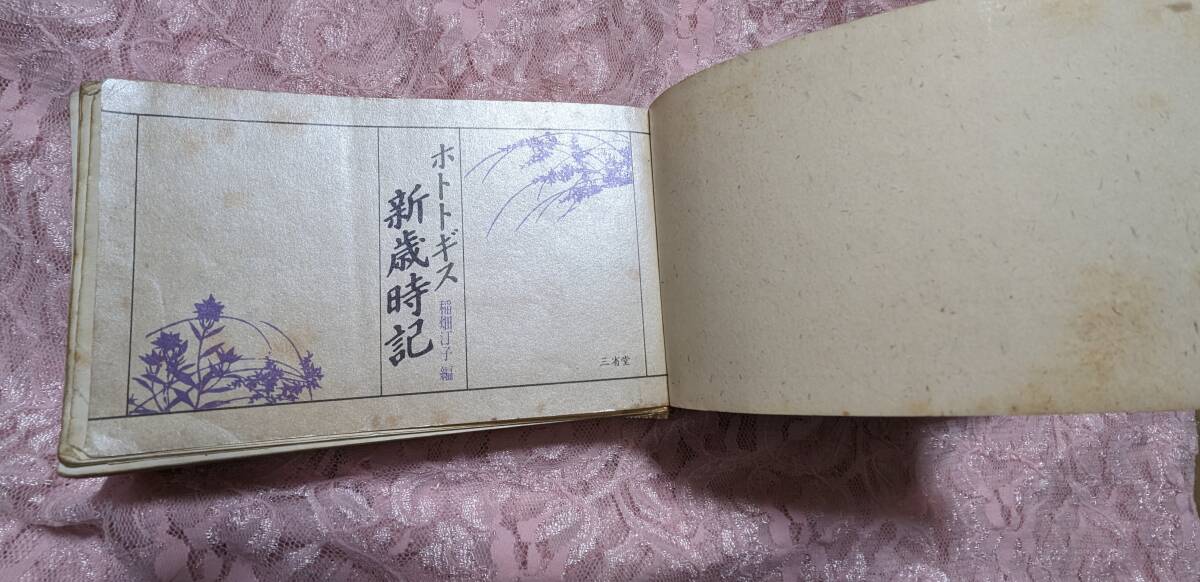 ホトトギス
新歳時記
稲畑汀子 編
三省堂